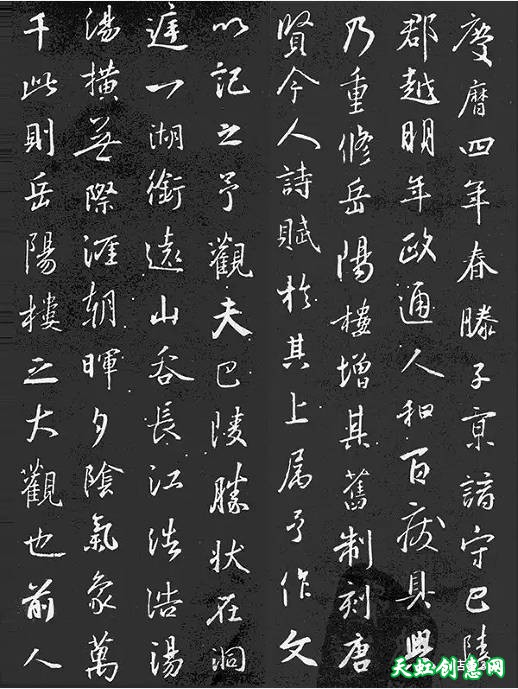 慶曆四年春滕子京謫守巴陵
郡越明年政通人和百廢具興
乃重修岳陽樓增其舊制刻唐
賢今人詩賦於其上属予作文
以記之予觀夫巴陵勝狀在洞
庭一湖銜遠山吞長江浩浩湯
湯橫無際涯朝暉夕陰氣象萬
千此則岳陽樓之大觀也前人
天虹创意网